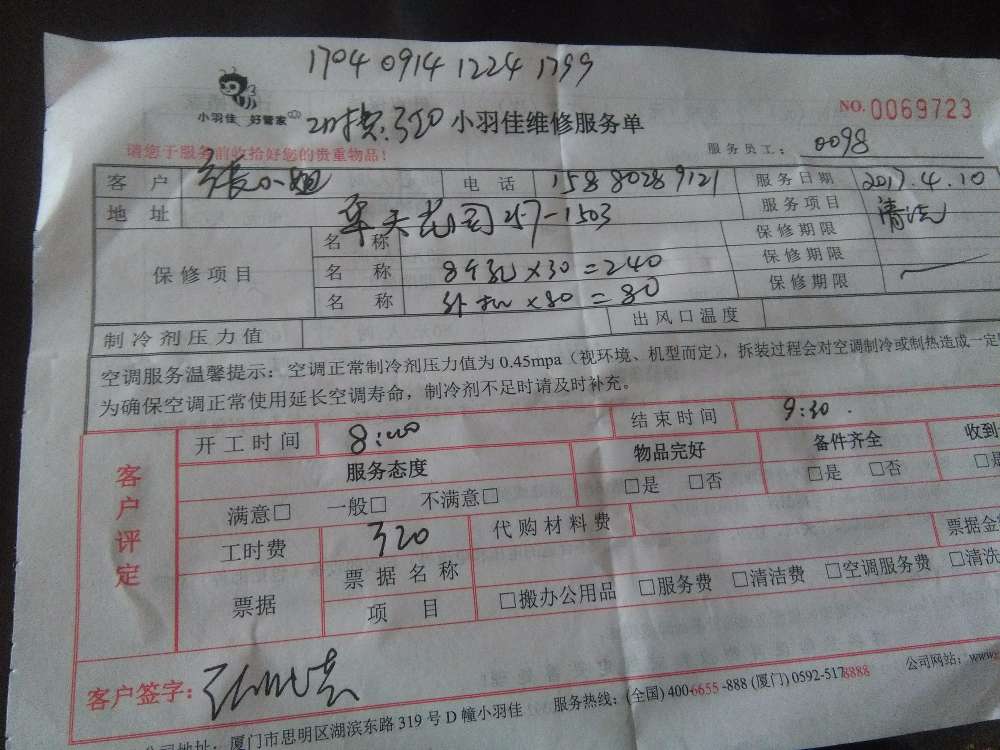 1704 0914 1224 1799
小羽佳 好管家 320 小羽佳维修服务单 NO.0069723
请您于服务前收拾好您的贵重物品! 服务员工: 0098
客户 张小姐 电话 15880289121 服务日期 2017.4.10
地址 天花园 257-1503 服务项目 清洗
保修项目 名称 保修期限
名称 8×30=240 保修期限
名称 外机×80=80 保修期限
制冷剂压力值 出风口温度
空调服务温馨提示:空调正常制冷剂压力值为0.45mpa(视环境、机型而定),拆装过程会对空调制冷或制热造成一定
为确保空调正常使用延长空调寿命,制冷剂不足时请及时补充。
客户评定 开工时间 8:00 结束时间 9:30
服务态度 物品完好 备件齐全 收到
满意□ 一般□ 不满意□ □是 □否 □是 □否 □是
工时费 320 代购材料费 票据金
票据 票据名称
项目 □搬办公用品 □服务费 □清洁费 □空调服务费 □清洗
客户签字:
公司地址:厦门市思明区湖滨东路319号D幢小羽佳 服务热线:(全国)400-6655-888 (厦门)0592-5178888 公司网站:www